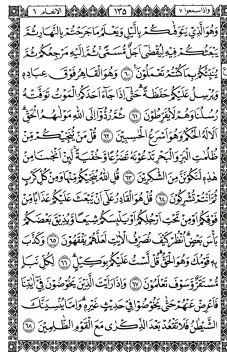 الانعام ٦ ١٣٥ واذاسمعوا ٧
وَهُوَ الَّذِي يَتَوَفّٰكُمْ بِالَّيْلِ وَيَعْلَمُ مَا جَرَحْتُمْ بِالنَّهَارِ ثُمَّ
يَبْعَثُكُمْ فِيْهِ لِيُقْضٰٓى اَجَلٌ مُّسَمًّى ثُمَّ اِلَيْهِ مَرْجِعُكُمْ ثُمَّ
يُنَبِّئُكُمْ بِمَا كُنْتُمْ تَعْمَلُوْنَ ﴿٦٠﴾ وَهُوَ الْقَاهِرُ فَوْقَ عِبَادِهٖ
وَيُرْسِلُ عَلَيْكُمْ حَفَظَةً حَتّٰٓى اِذَا جَآءَ اَحَدَكُمُ الْمَوْتُ تَوَفَّتْهُ
رُسُلُنَا وَهُمْ لَا يُفَرِّطُوْنَ ﴿٦١﴾ ثُمَّ رُدُّوْٓا اِلَى اللّٰهِ مَوْلٰىهُمُ الْحَقِّ
اَلَا لَهُ الْحُكْمُ وَهُوَ اَسْرَعُ الْحٰسِبِيْنَ ﴿٦٢﴾ قُلْ مَنْ يُّنَجِّيْكُمْ مِّنْ
ظُلُمٰتِ الْبَرِّ وَالْبَحْرِ تَدْعُوْنَهٗ تَضَرُّعًا وَّخُفْيَةً لَئِنْ اَنْجٰىنَا مِنْ
هٰذِهٖ لَنَكُوْنَنَّ مِنَ الشّٰكِرِيْنَ ﴿٦٣﴾ قُلِ اللّٰهُ يُنَجِّيْكُمْ مِّنْهَا وَمِنْ كُلِّ كَرْبٍ
ثُمَّ اَنْتُمْ تُشْرِكُوْنَ ﴿٦٤﴾ قُلْ هُوَ الْقَادِرُ عَلٰٓى اَنْ يَّبْعَثَ عَلَيْكُمْ عَذَابًا مِّنْ
فَوْقِكُمْ اَوْ مِنْ تَحْتِ اَرْجُلِكُمْ اَوْ يَلْبِسَكُمْ شِيَعًا وَّيُذِيْقَ بَعْضَكُمْ
بَاْسَ بَعْضٍ اُنْظُرْ كَيْفَ نُصَرِّفُ الْاٰيٰتِ لَعَلَّهُمْ يَفْقَهُوْنَ ﴿٦٥﴾ وَكَذَّبَ
بِهٖ قَوْمُكَ وَهُوَ الْحَقُّ قُلْ لَّسْتُ عَلَيْكُمْ بِوَكِيْلٍ ﴿٦٦﴾ لِكُلِّ نَبَاٍ
مُّسْتَقَرٌّ وَّسَوْفَ تَعْلَمُوْنَ ﴿٦٧﴾ وَاِذَا رَاَيْتَ الَّذِيْنَ يَخُوْضُوْنَ فِيْٓ اٰيٰتِنَا
فَاَعْرِضْ عَنْهُمْ حَتّٰى يَخُوْضُوْا فِيْ حَدِيْثٍ غَيْرِهٖ وَاِمَّا يُنْسِيَنَّكَ
الشَّيْطٰنُ فَلَا تَقْعُدْ بَعْدَ الذِّكْرٰى مَعَ الْقَوْمِ الظّٰلِمِيْنَ ﴿٦٨﴾